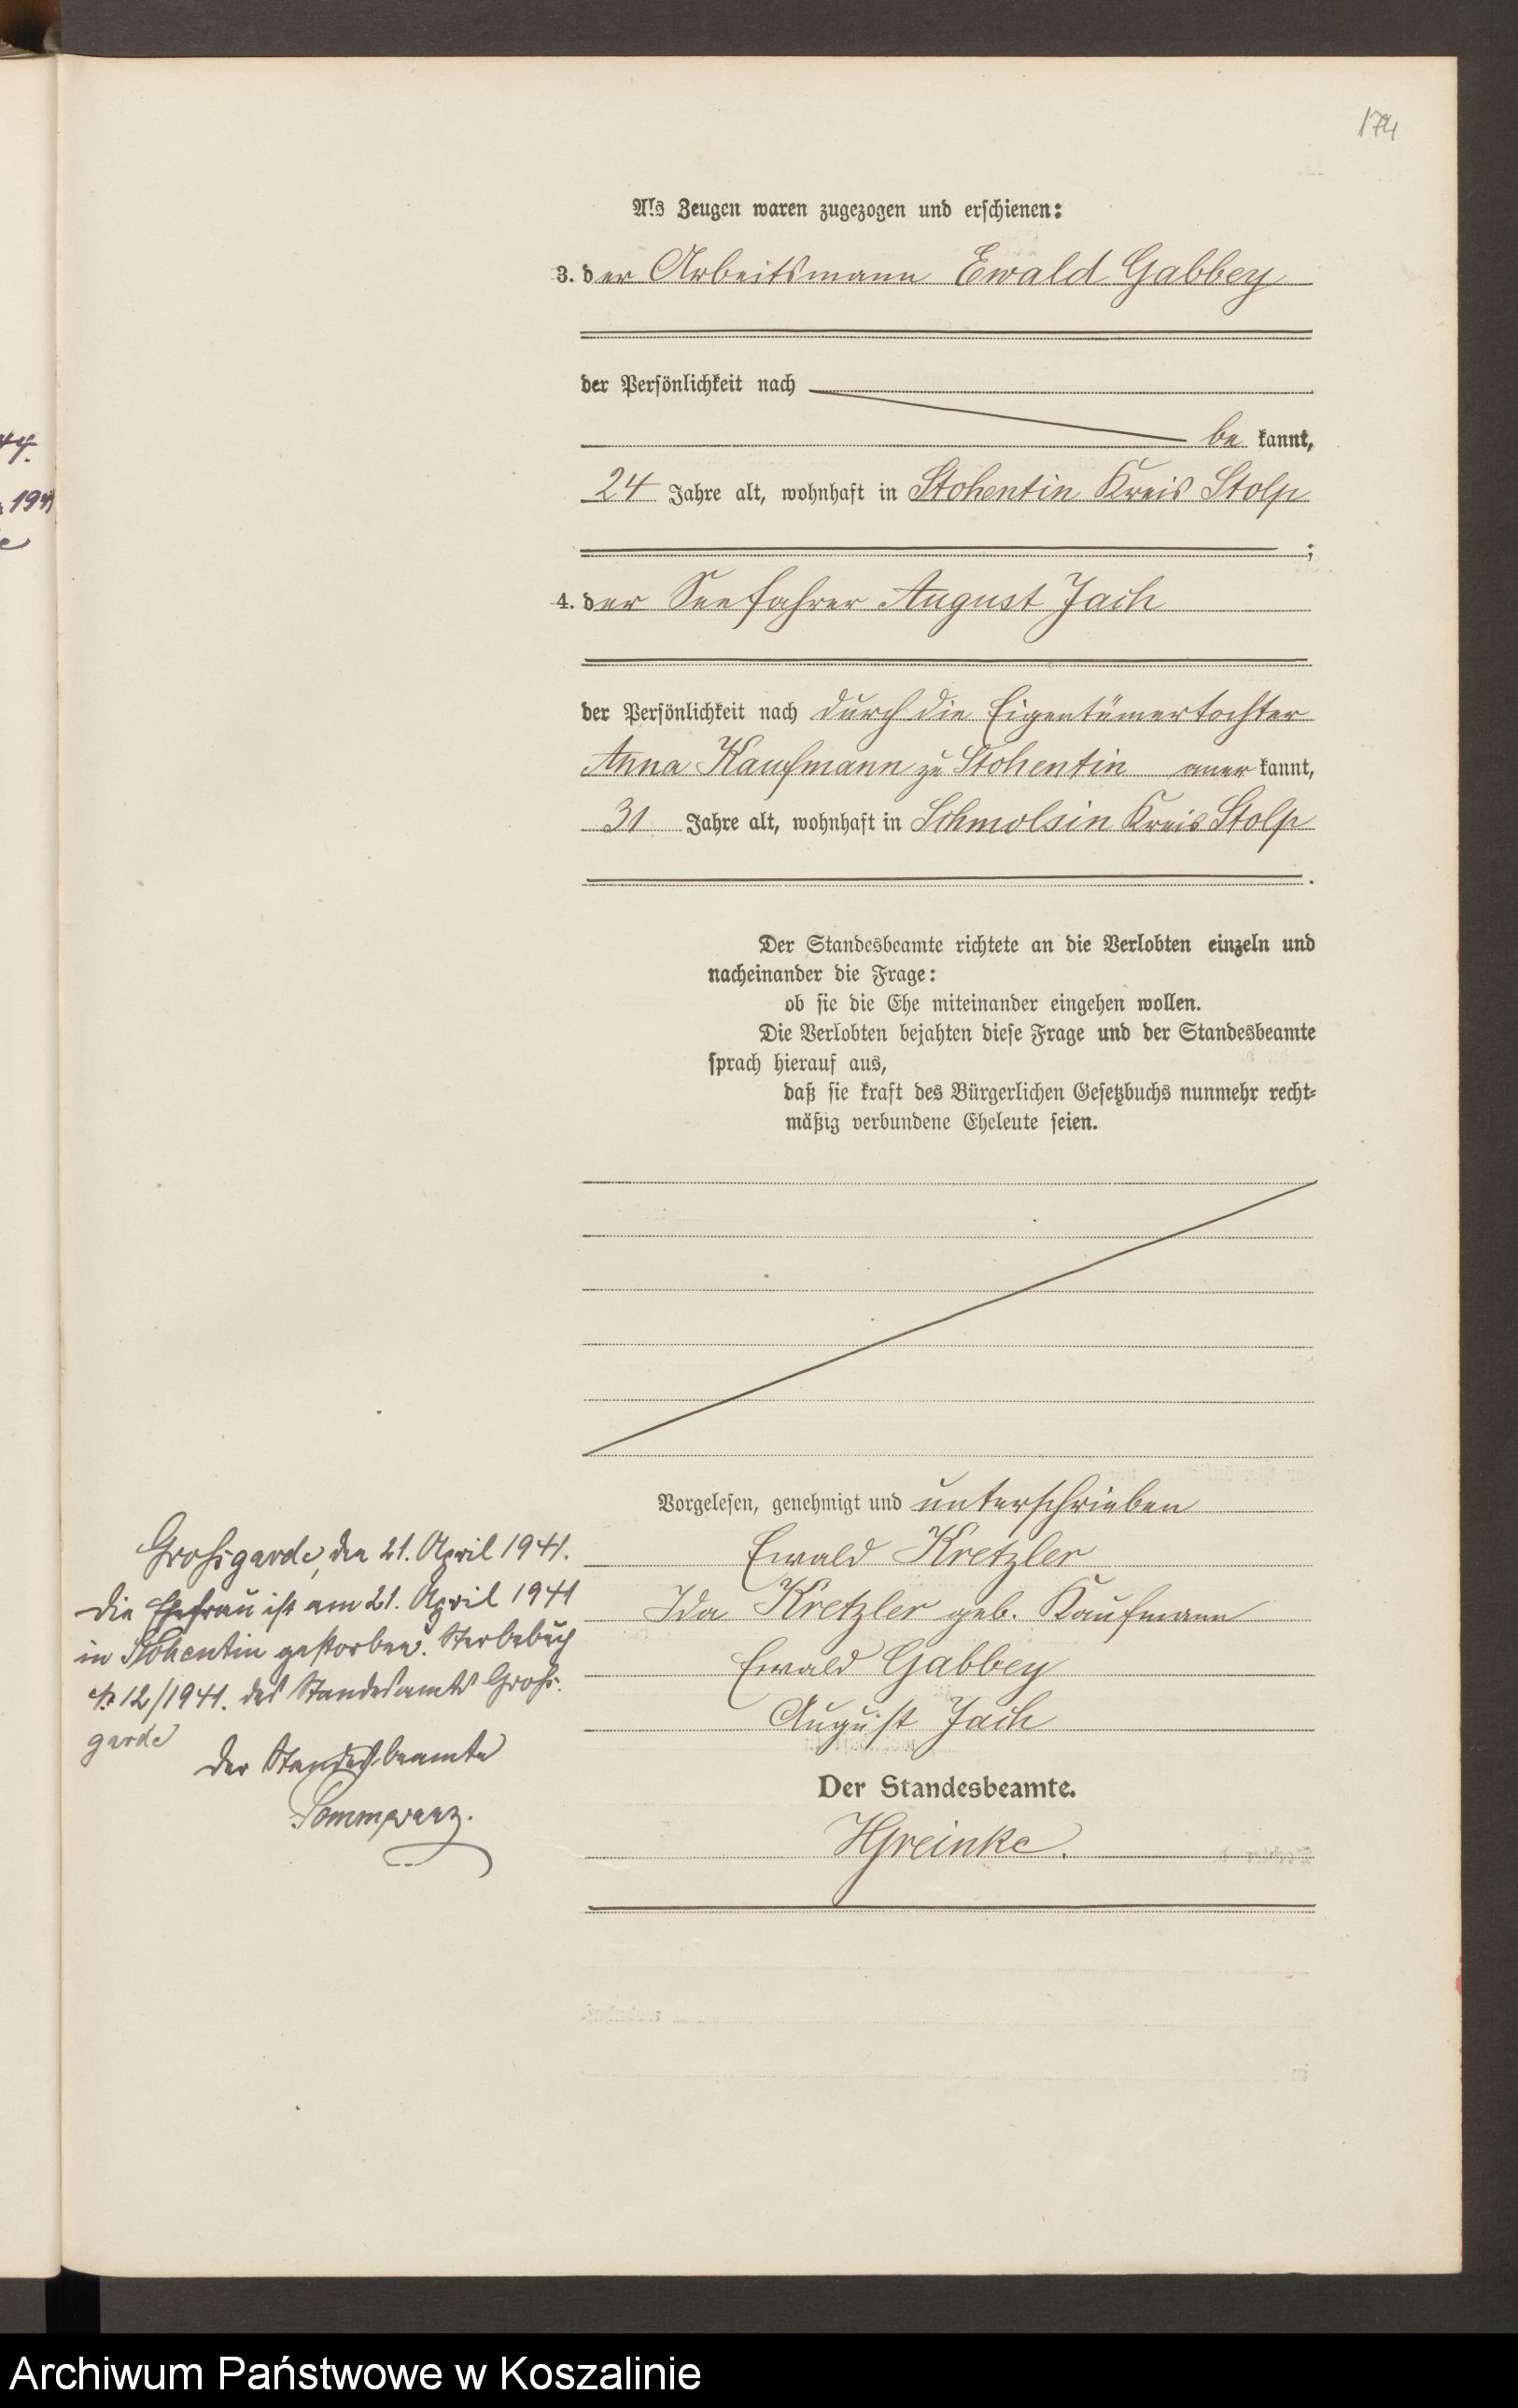 174
Als Zeugen waren zugezogen und erschienen:
3. der Arbeitsmann Ewald Gabbey
der Persönlichkeit nach
be kannt,
24 Jahre alt, wohnhaft in Stohentin Kreis Stolp
;
4. der Seefahrer August Jach
der Persönlichkeit nach durch die Eigentümertochter
Anna Kaufmann zu Stohentin aner kannt,
31 Jahre alt, wohnhaft in Schmolsin Kreis Stolp
.
Der Standesbeamte richtete an die Verlobten einzeln und
nacheinander die Frage:
ob sie die Ehe miteinander eingehen wollen.
Die Verlobten bejahten diese Frage und der Standesbeamte
sprach hierauf aus,
daß sie kraft des Bürgerlichen Gesetzbuchs nunmehr recht-
mäßig verbundene Eheleute seien.
Vorgelesen, genehmigt und unterschrieben
Ewald Kretzler
Ida Kretzler geb. Kaufmann
Ewald Gabbey
August Jach
Der Standesbeamte.
HGreinke.
Großgarde, den 21. April 1941.
Die Ehefrau ist am 21. April 1941
in Stohentin gestorben. Sterbebuch
№ 12/1941. des Standesamts Groß-
garde
Der Standesbeamte
Archiwum Państwowe w Koszalinie